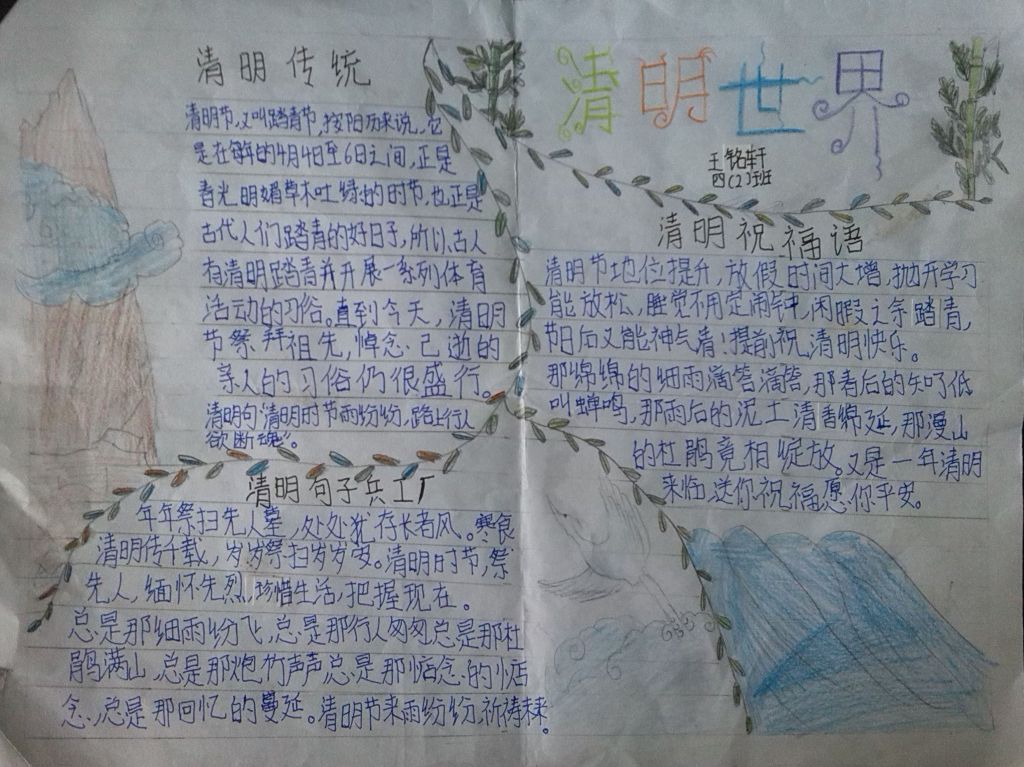 清明世界
王铭轩
四(2)班
清明传统
清明节,又叫踏青节,按阳历来说,它
是在每年的4月4日至6日之间,正是
春光明媚草木吐绿的时节,也正是
古代人们踏青的好日子,所以古人
有清明踏青并开展一系列体育
活动的习俗。直到今天,清明
节祭拜祖先,悼念已逝的
亲人的习俗仍很盛行。
清明句:清明时节雨纷纷,路上行人
欲断魂。
清明祝福语
清明节地位提升,放假时间大增,抛开学习
能放松,睡觉不用定闹钟,闲暇之余踏青,
节日后又能神气清!提前祝,清明快乐。
那绵绵的细雨滴答滴答,那青后的知了低
叫蝉鸣,那雨后的泥土清香绵延,那漫山
的杜鹃竟相绽放。又是一年清明
来临,送你祝福愿你平安。
清明句子兵工厂
年年祭扫先人墓,处处犹存长者风。寒食
清明传千载,岁岁祭扫岁岁安。清明时节,祭
先人,缅怀先烈,珍惜生活,把握现在。
总是那细雨纷飞,总是那行人匆匆总是那杜
鹃满山,总是那炮竹声声总是那惦念的惦
念,总是那回忆的蔓延。清明节来雨纷纷,祈祷未来。